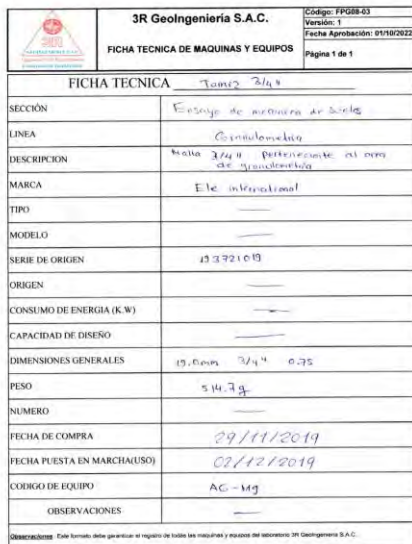 3R GeoIngeniería S.A.C.
FICHA TECNICA DE MAQUINAS Y EQUIPOS
Código: FPG08-03
Versión: 1
Fecha Aprobación: 01/10/2022
Página 1 de 1
FICHA TECNICA Tamiz 3/4"
SECCIÓN Ensayo de mecanica de Suelos
LINEA Granulometria
DESCRIPCION Malla 3/4" Perteneciente al area
de granulometria
MARCA Ele international
TIPO —
MODELO —
SERIE DE ORIGEN 193721019
ORIGEN —
CONSUMO DE ENERGIA (K.W) —
CAPACIDAD DE DISEÑO —
DIMENSIONES GENERALES 19.0mm 3/4" 0.75
PESO 514.7g
NUMERO —
FECHA DE COMPRA 29/11/2019
FECHA PUESTA EN MARCHA(USO) 02/12/2019
CODIGO DE EQUIPO AG-M9
OBSERVACIONES —
Observaciones: Este formato debe garantizar el registro de todas las maquinas y equipos del laboratorio 3R GeoIngeniería S.A.C.